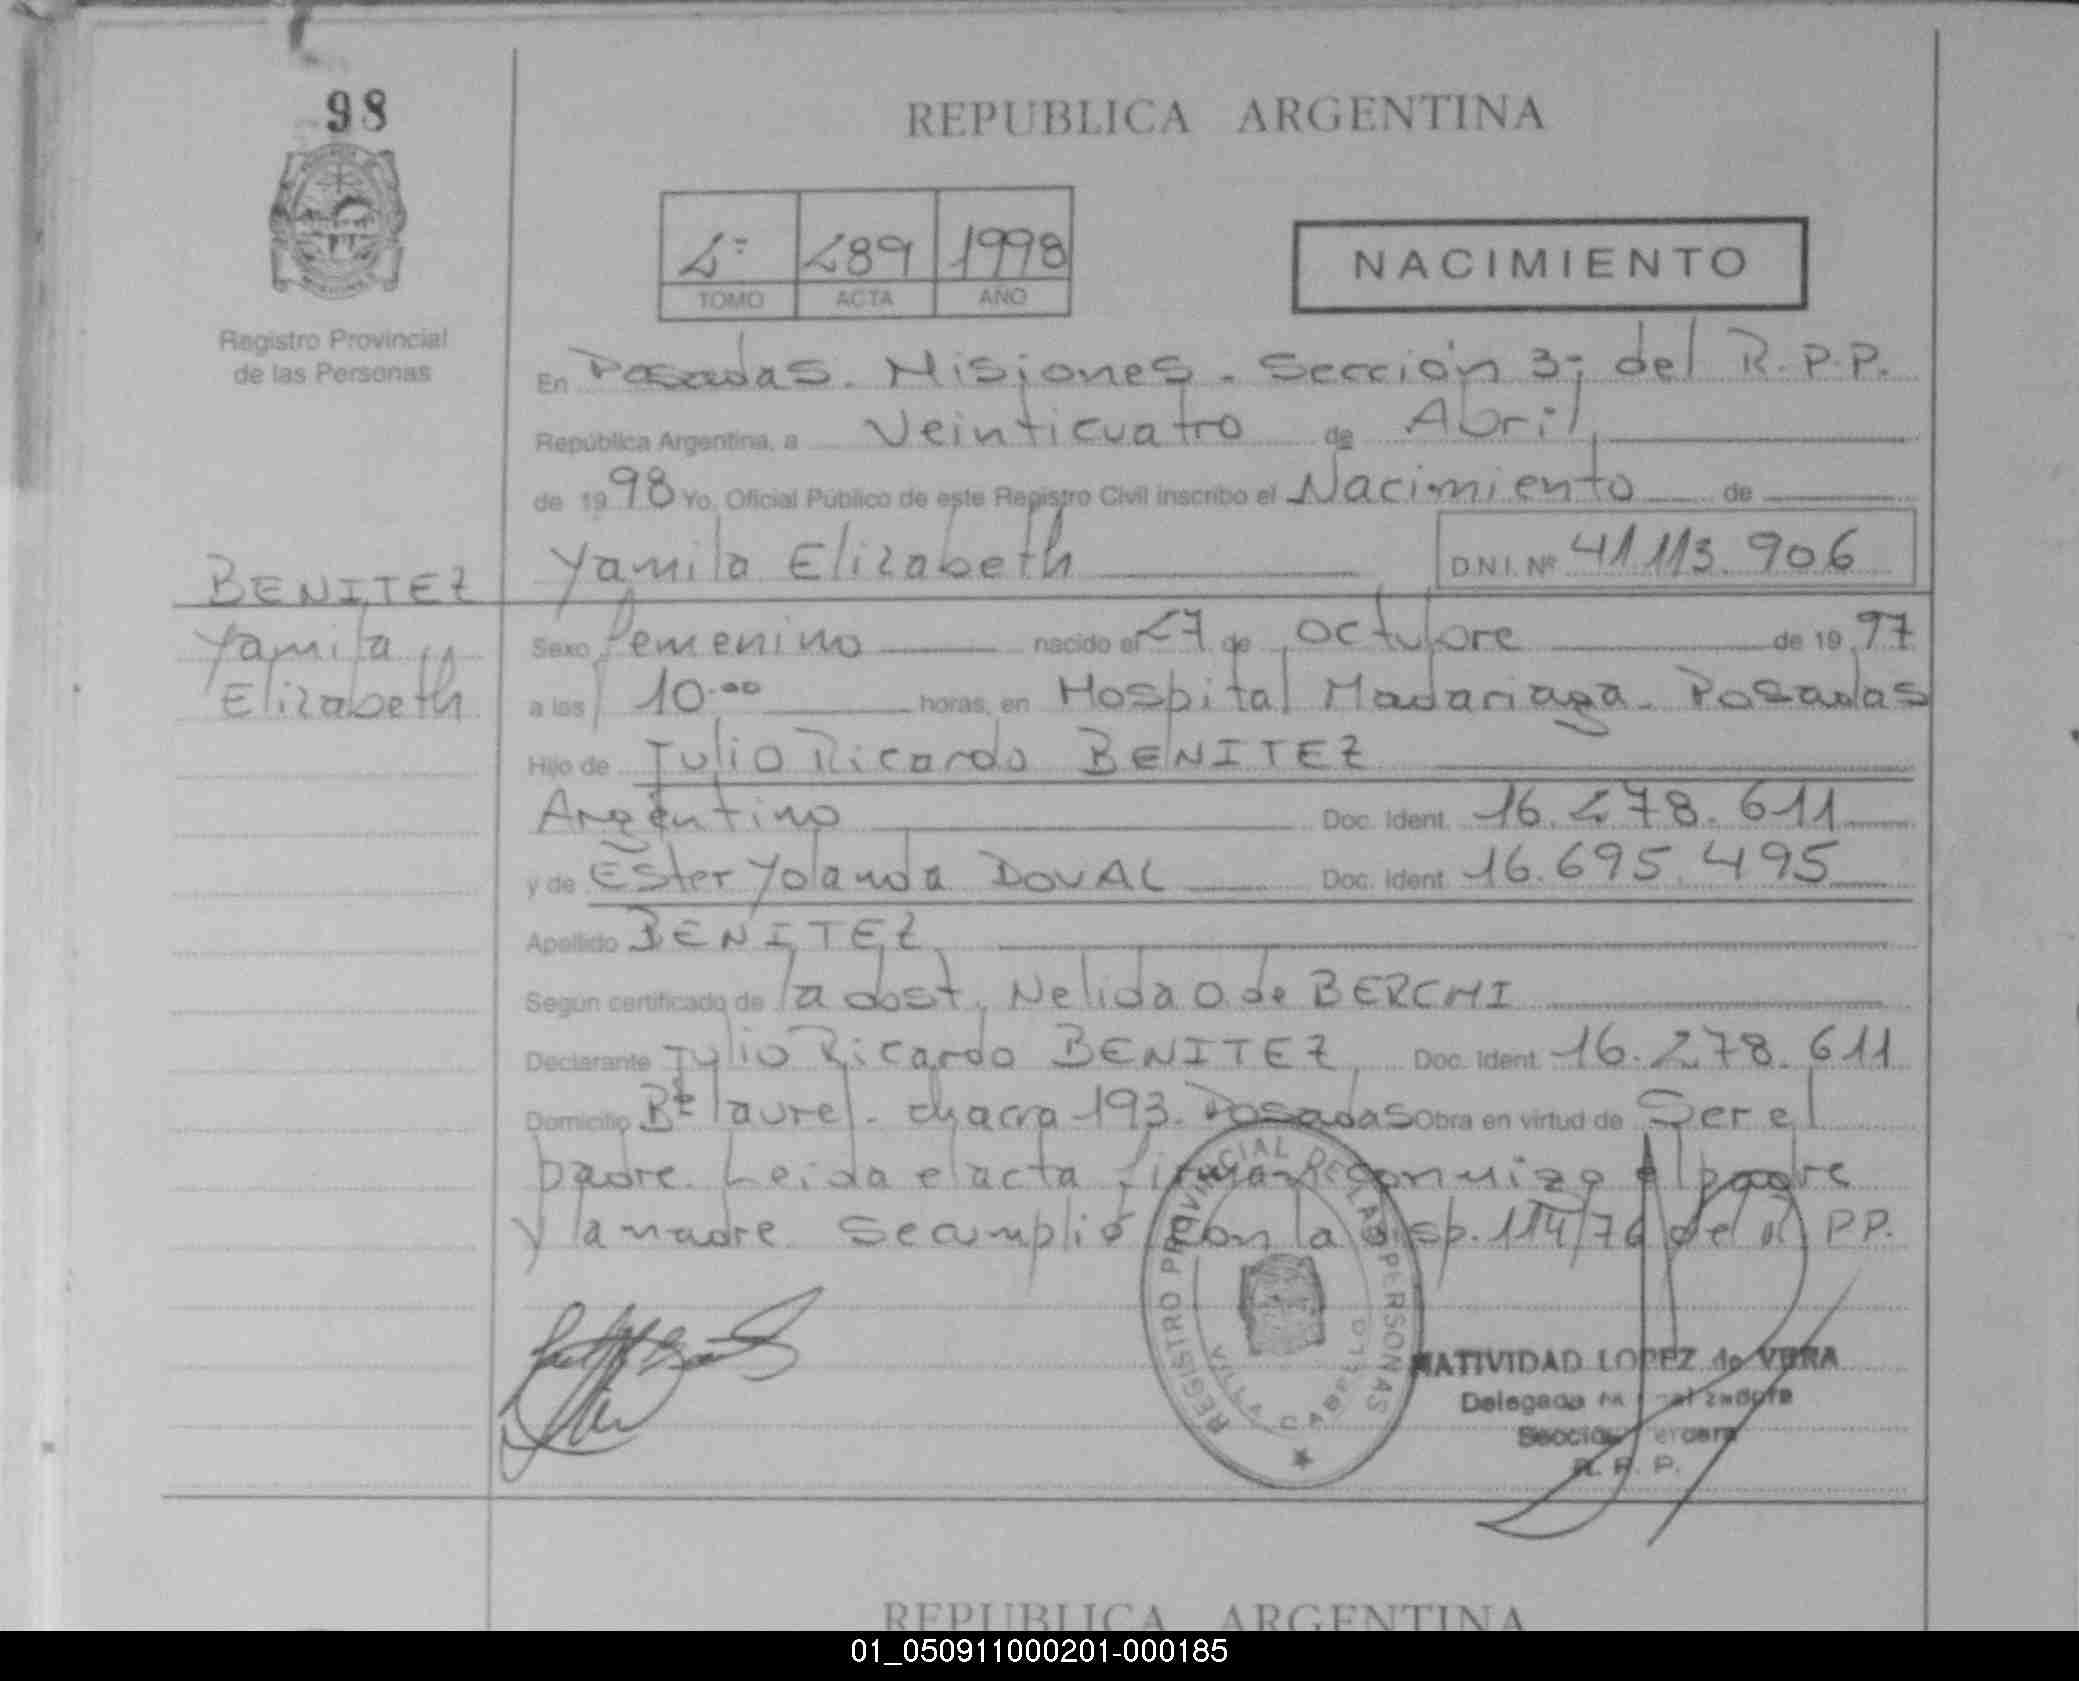 98
REPUBLICA ARGENTINA
2º 289 1998
TOMO ACTA AÑO
NACIMIENTO
Registro Provincial
de las Personas
En Posadas. Misiones. Sección 3ª del R.P.P.
República Argentina, a Veinticuatro de Abril
de 1998 Yo, Oficial Público de este Registro Civil inscribo el Nacimiento de
Yamila Elizabeth D.N.I. Nº 41.113.906
BENITEZ
Yamila
Elizabeth
Sexo femenino nacido el 27 de octubre de 1997
a las 10.00 horas, en Hospital Madariaga. Posadas
Hijo de Julio Ricardo BENITEZ
Argentino Doc. Ident. 16.278.611
y de Ester Yolanda DOVAL Doc. Ident. 16.695.495
Apellido BENITEZ
Según certificado de la obst. Nelida O. de BERCHI
Declarante Julio Ricardo BENITEZ Doc. Ident. 16.278.611
Domicilio Bº laurel. chacra 193. Posadas Obra en virtud de Ser el
padre. Leida el acta firman el padre
y la madre. Se cumplió con la disp. 114/76 del R.P.P.
REGISTRO PROVINCIAL DE LAS PERSONAS
NATIVIDAD LOPEZ de VERA
Delegada
Sección Tercera
R. P. P.
REPUBLICA ARGENTINA
01_050911000201-000185